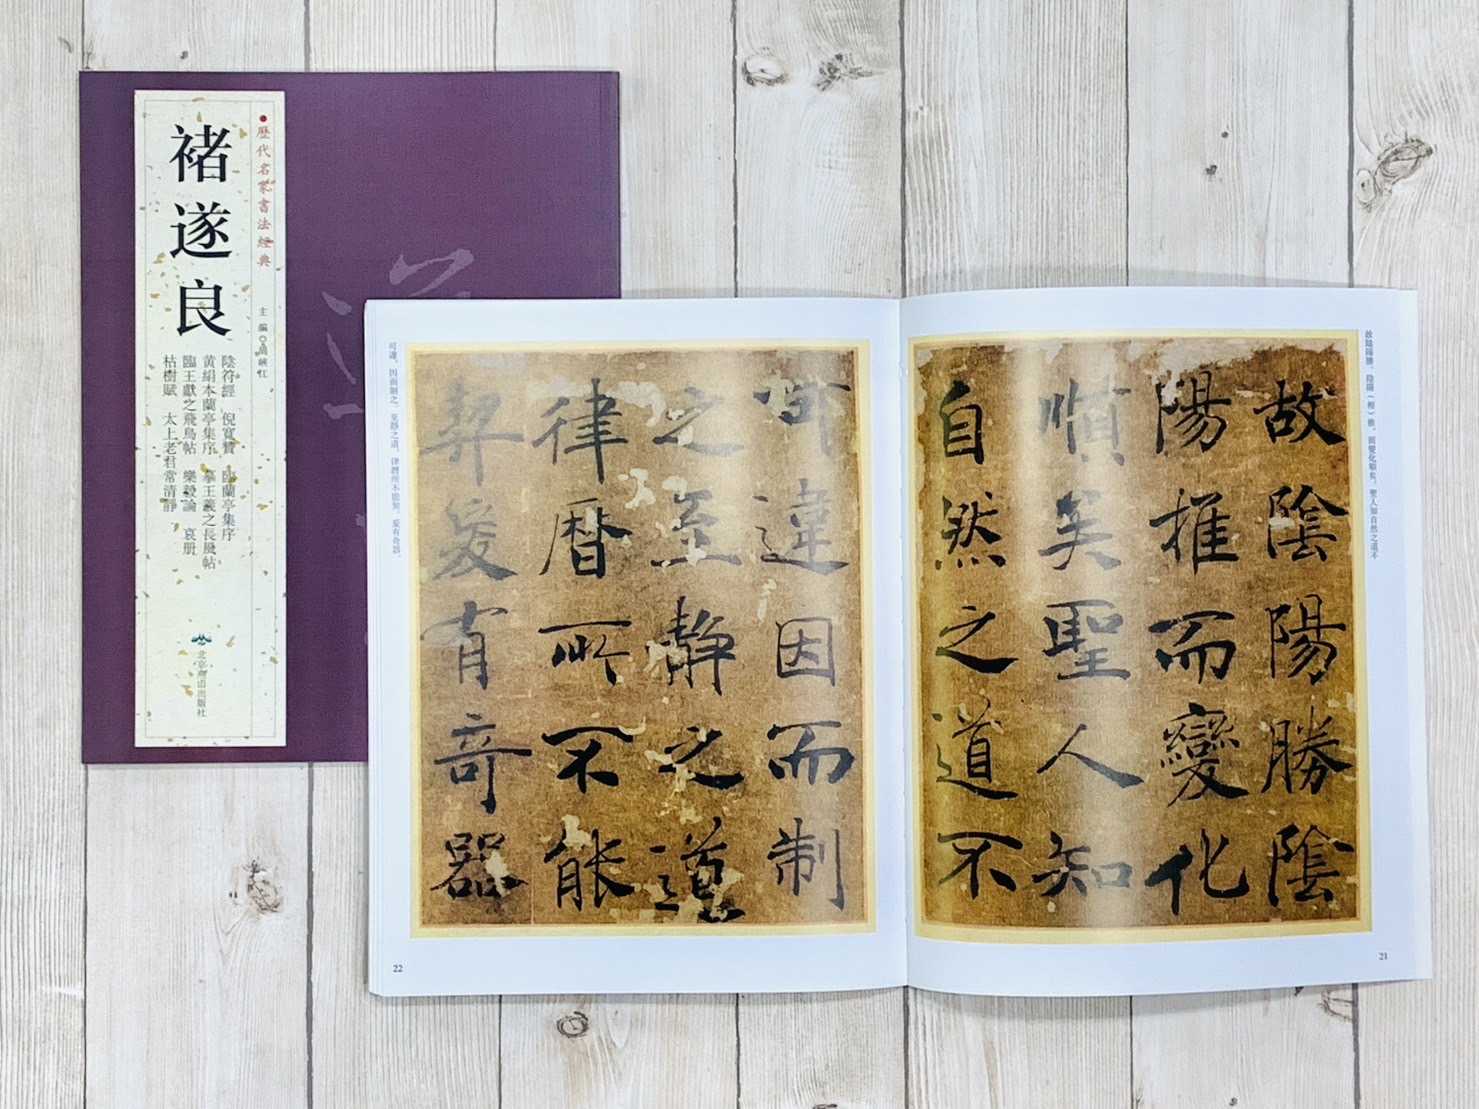 歷代名家書法經典
褚遂良
主編
陰符經 倪寬贊 臨蘭亭集序
黃絹本蘭亭集序 摹王羲之長風帖
臨王獻之飛鳥帖 樂毅論 哀册
枯樹賦 太上老君常清靜
北京燕山出版社
故陰陽勝，陰陽（相）推，而變化順矣。聖人知自然之道不
故陰陽勝陰
陽推而變化
順矣聖人知
自然之道不
21
可違因而制
之至靜之道
律曆所不能
契爰有奇器
可違，因而制之。至靜之道，律曆所不能契。爰有奇器，
22